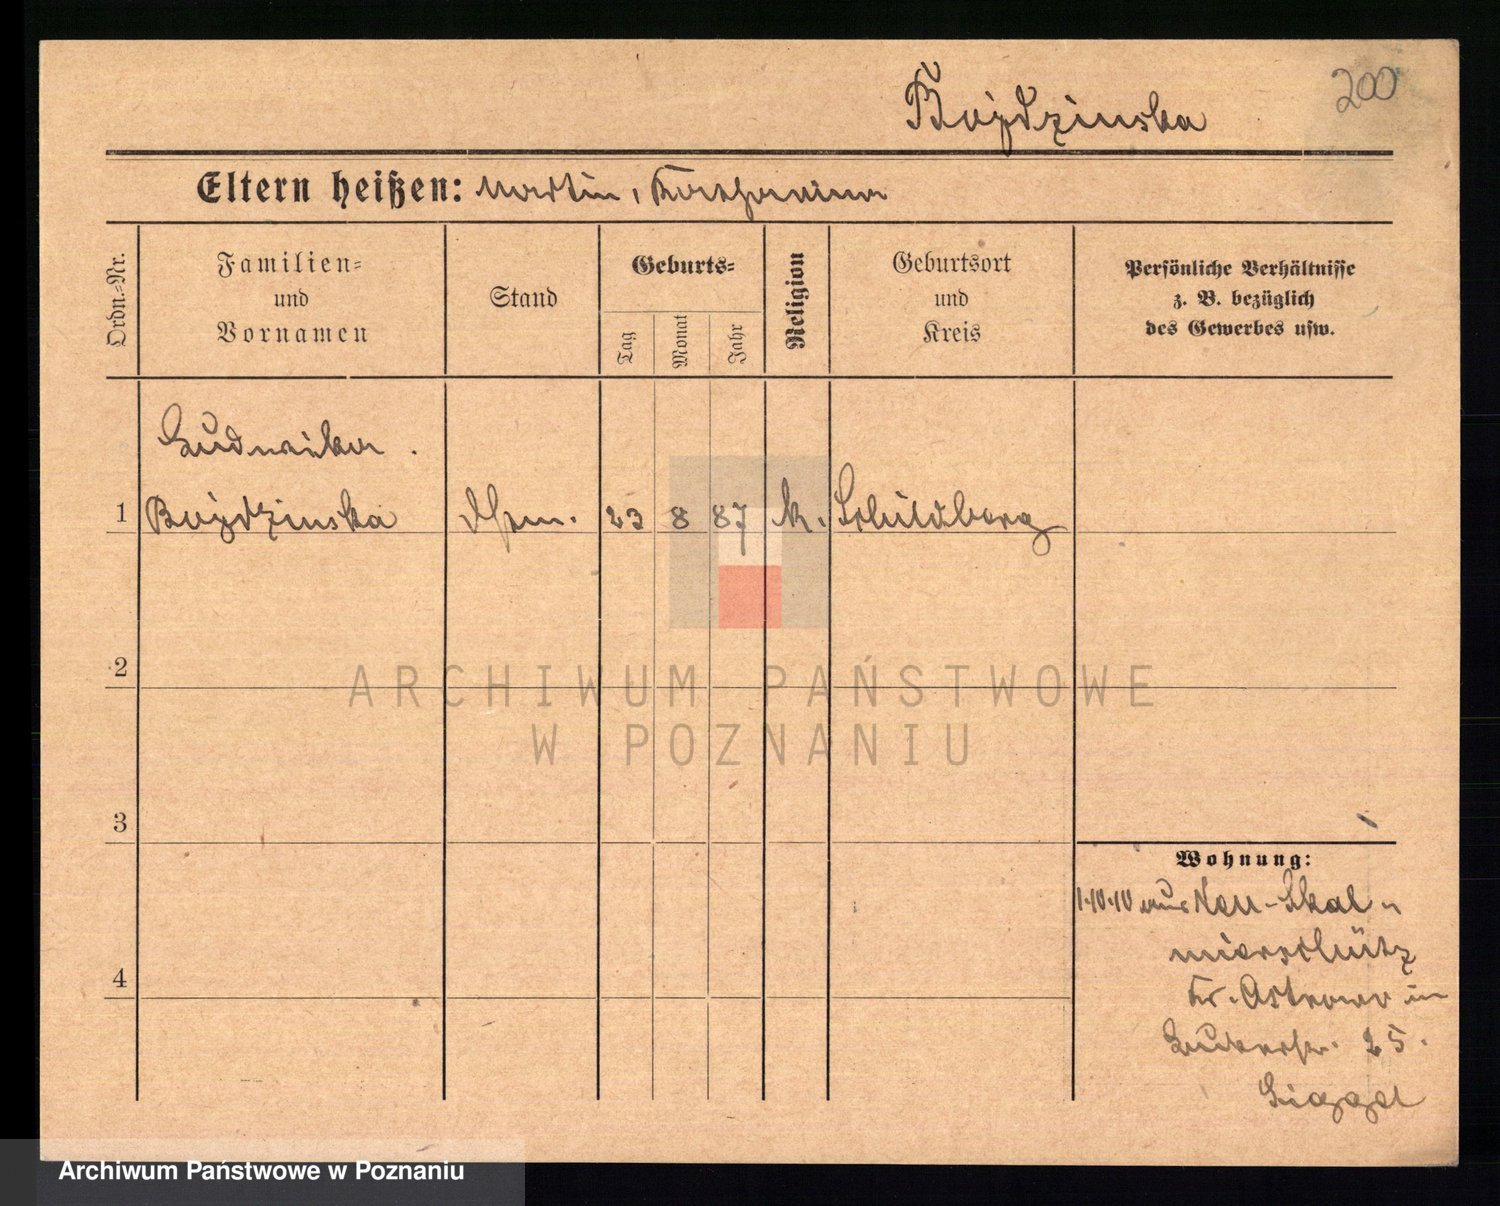 200
Bojdzinska
Eltern heißen: Martin, Katharina
Ordn.-Nr.
Familien-
und
Vornamen
Stand
Geburts-
Tag
Monat
Jahr
Religion
Geburtsort
und
Kreis
Persönliche Verhältnisse
z. B. bezüglich
des Gewerbes usw.
Ludwika.
1 Bojdzinska 23 8 87 k. Schildberg
2
3
4
Wohnung:
1.10.10 aus Neu-Skal-
mierschütz
Kr. Ostrowo in
25.
ARCHIWUM PAŃSTWOWE
W POZNANIU
Archiwum Państwowe w Poznaniu